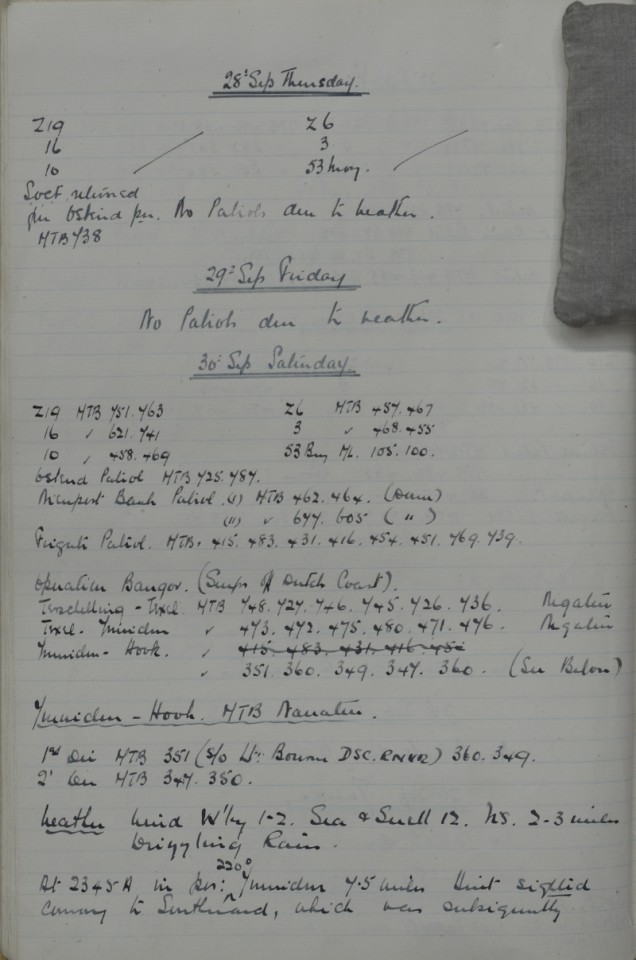 28th Sep Thursday.
Z19 Z6
16 3
10 53 Buoy.
returned
for Ostend No Patrols due to weather.
MTB 738
29th Sep Friday
No Patrols due to weather.
30th Sep Saturday
Z19 MTB 751. 763 Z6 MTB 457. 467
16 " 621. 741 3 " 468. 455
10 " 458. 469 53 Buoy ML. 105. 100.
Ostend Patrol MTB 725. 787.
Nieuport Bank Patrol. (1) MTB 462. 464. (Dunn)
(11) " 677. 605 ( " )
Frigate Patrol. MTBs 415. 483. 431. 416. 454. 451. 769. 739.
Operation Bangor. (Sweeps of Dutch Coast).
Terschelling - Texel. MTB 748. 727. 746. 745. 726. 736. Negative
Texel - Ymuiden " 473. 472. 475. 480. 471. 476. Negative
Ymuiden - Hook. " 415. 483. 431. 416. 454
" 351. 360. 349. 347. 360. (See Below)
Ymuiden - Hook. MTB Narrative.
1st Div MTB 351 (S/O Lt. Bourne DSC. RNVR) 360. 349.
2nd Div MTB 347. 350.
Weather Wind W'ly 1-2. Sea & Swell 12. Vis. 2-3 miles
Drizzling Rain.
220°
At 2345A in pos: Ymuiden 7.5 miles Unit sighted
convoy to Southward, which was subsequently